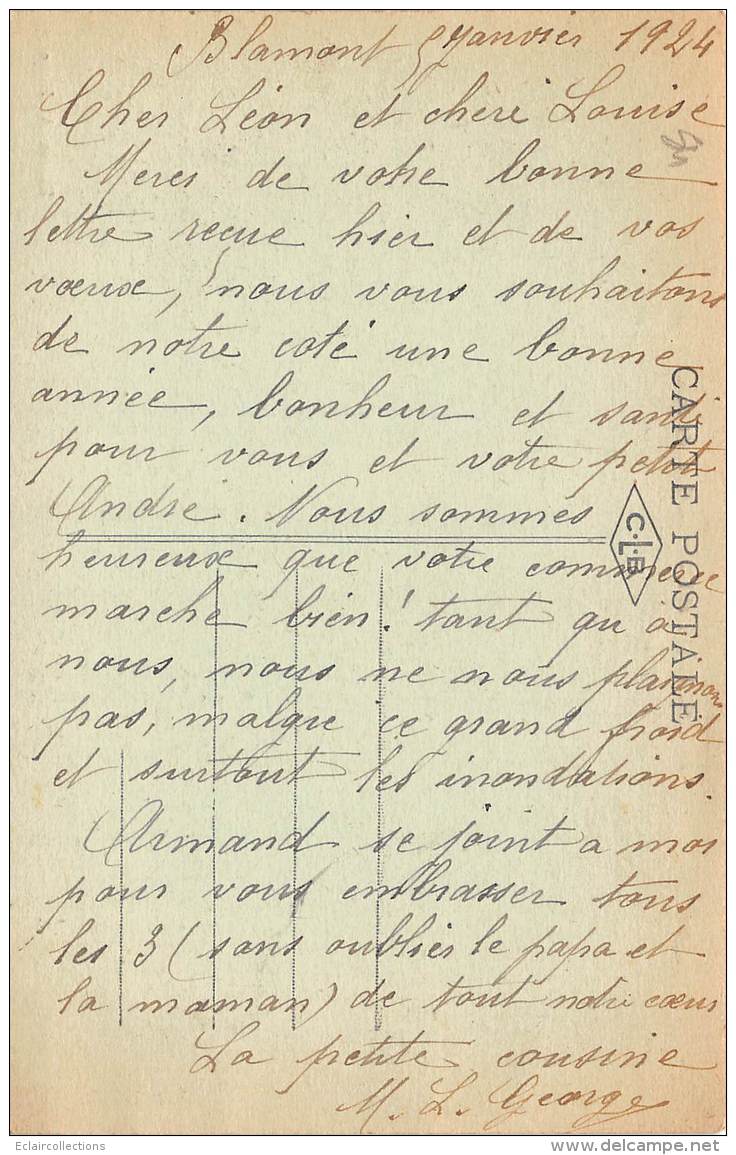 Blamont 5 Janvier 1924
Cher Léon et chere Louise
Merci de votre bonne
lettre reçue hier et de vos
vœux, nous vous souhaitons
de notre coté une bonne
année, bonheur et santé
pour vous et votre petit
André. Nous sommes
heureux que votre commerce
marche bien! tant qu'à
nous, nous ne nous plaignons
pas, malgre ce grand froid
et surtout les inondations.
Armand se joint a moi
pour vous embrasser tous
les 3 (sans oublier le papa et
la maman) de tout notre cœur
La petite cousine
M. L. George
CARTE POSTALE
C.L.B
Eclaircollections